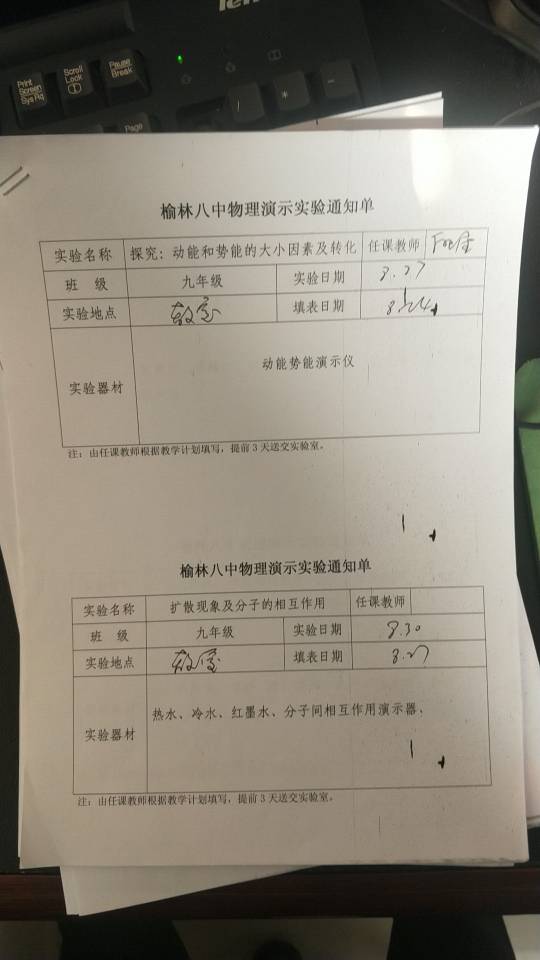 Print Screen SysRq
Scroll Lock
Pause Break
Page
/ * -
榆林八中物理演示实验通知单
实验名称 探究：动能和势能的大小因素及转化 任课教师
班 级 九年级 实验日期 8.27
实验地点 教室 填表日期 8.24
实验器材 动能势能演示仪
注：由任课教师根据教学计划填写，提前3天送交实验室。
榆林八中物理演示实验通知单
实验名称 扩散现象及分子的相互作用 任课教师
班 级 九年级 实验日期 8.30
实验地点 教室 填表日期 8.27
实验器材 热水、冷水、红墨水、分子间相互作用演示器、
注：由任课教师根据教学计划填写，提前3天送交实验室。